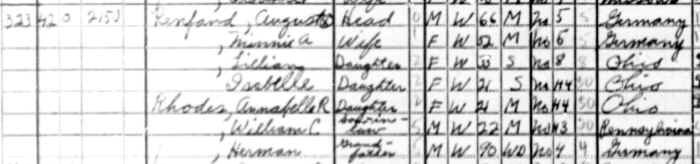 323 420 2150 Renford, August Head M W 66 M No 5 Germany
, Minnie A Wife F W 52 M No 6 Germany
, Lillian Daughter F W S No 8 Ohio
, Isabelle Daughter F W 21 S No H4 30 Ohio
Rhodes, Annabelle R Daughter F W 21 M No H4 30 Ohio
, William C. Son-in-law M W 22 M No H3 Pennsylvania
, Herman Grand-father M W 90 WD No 4 Germany